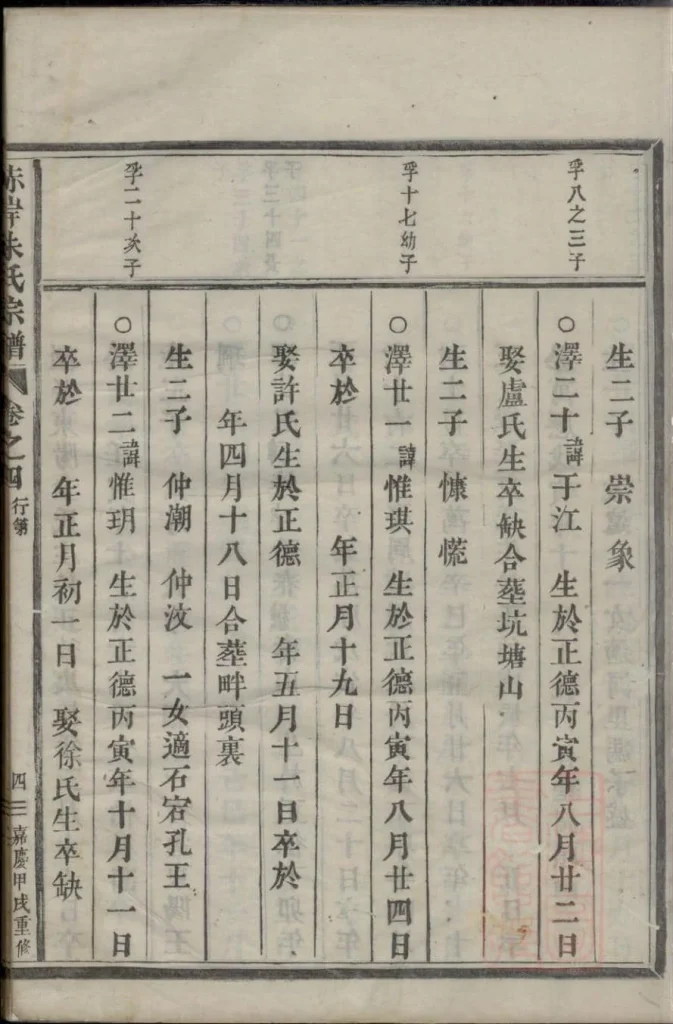 生二子　崇　象
孚八之三子
○澤二十諱于江　生於正德丙寅年八月廿二日
娶盧氏生卒缺合塟坑塘山
生二子　慷　慌
孚十七幼子
○澤廿一諱惟琪　生於正德丙寅年八月廿四日
卒於　年正月十九日
娶許氏生於正德　年五月十一日卒於
年四月十八日合塟畔頭裏
生二子　仲潮　仲汶　一女適石宕孔王
孚二十次子
○澤廿二諱惟玥　生於正德丙寅年十月十一日
卒於　年正月初一日　娶徐氏生卒缺
赤岸朱氏宗譜　卷之四　行第　四　嘉慶甲戌重修